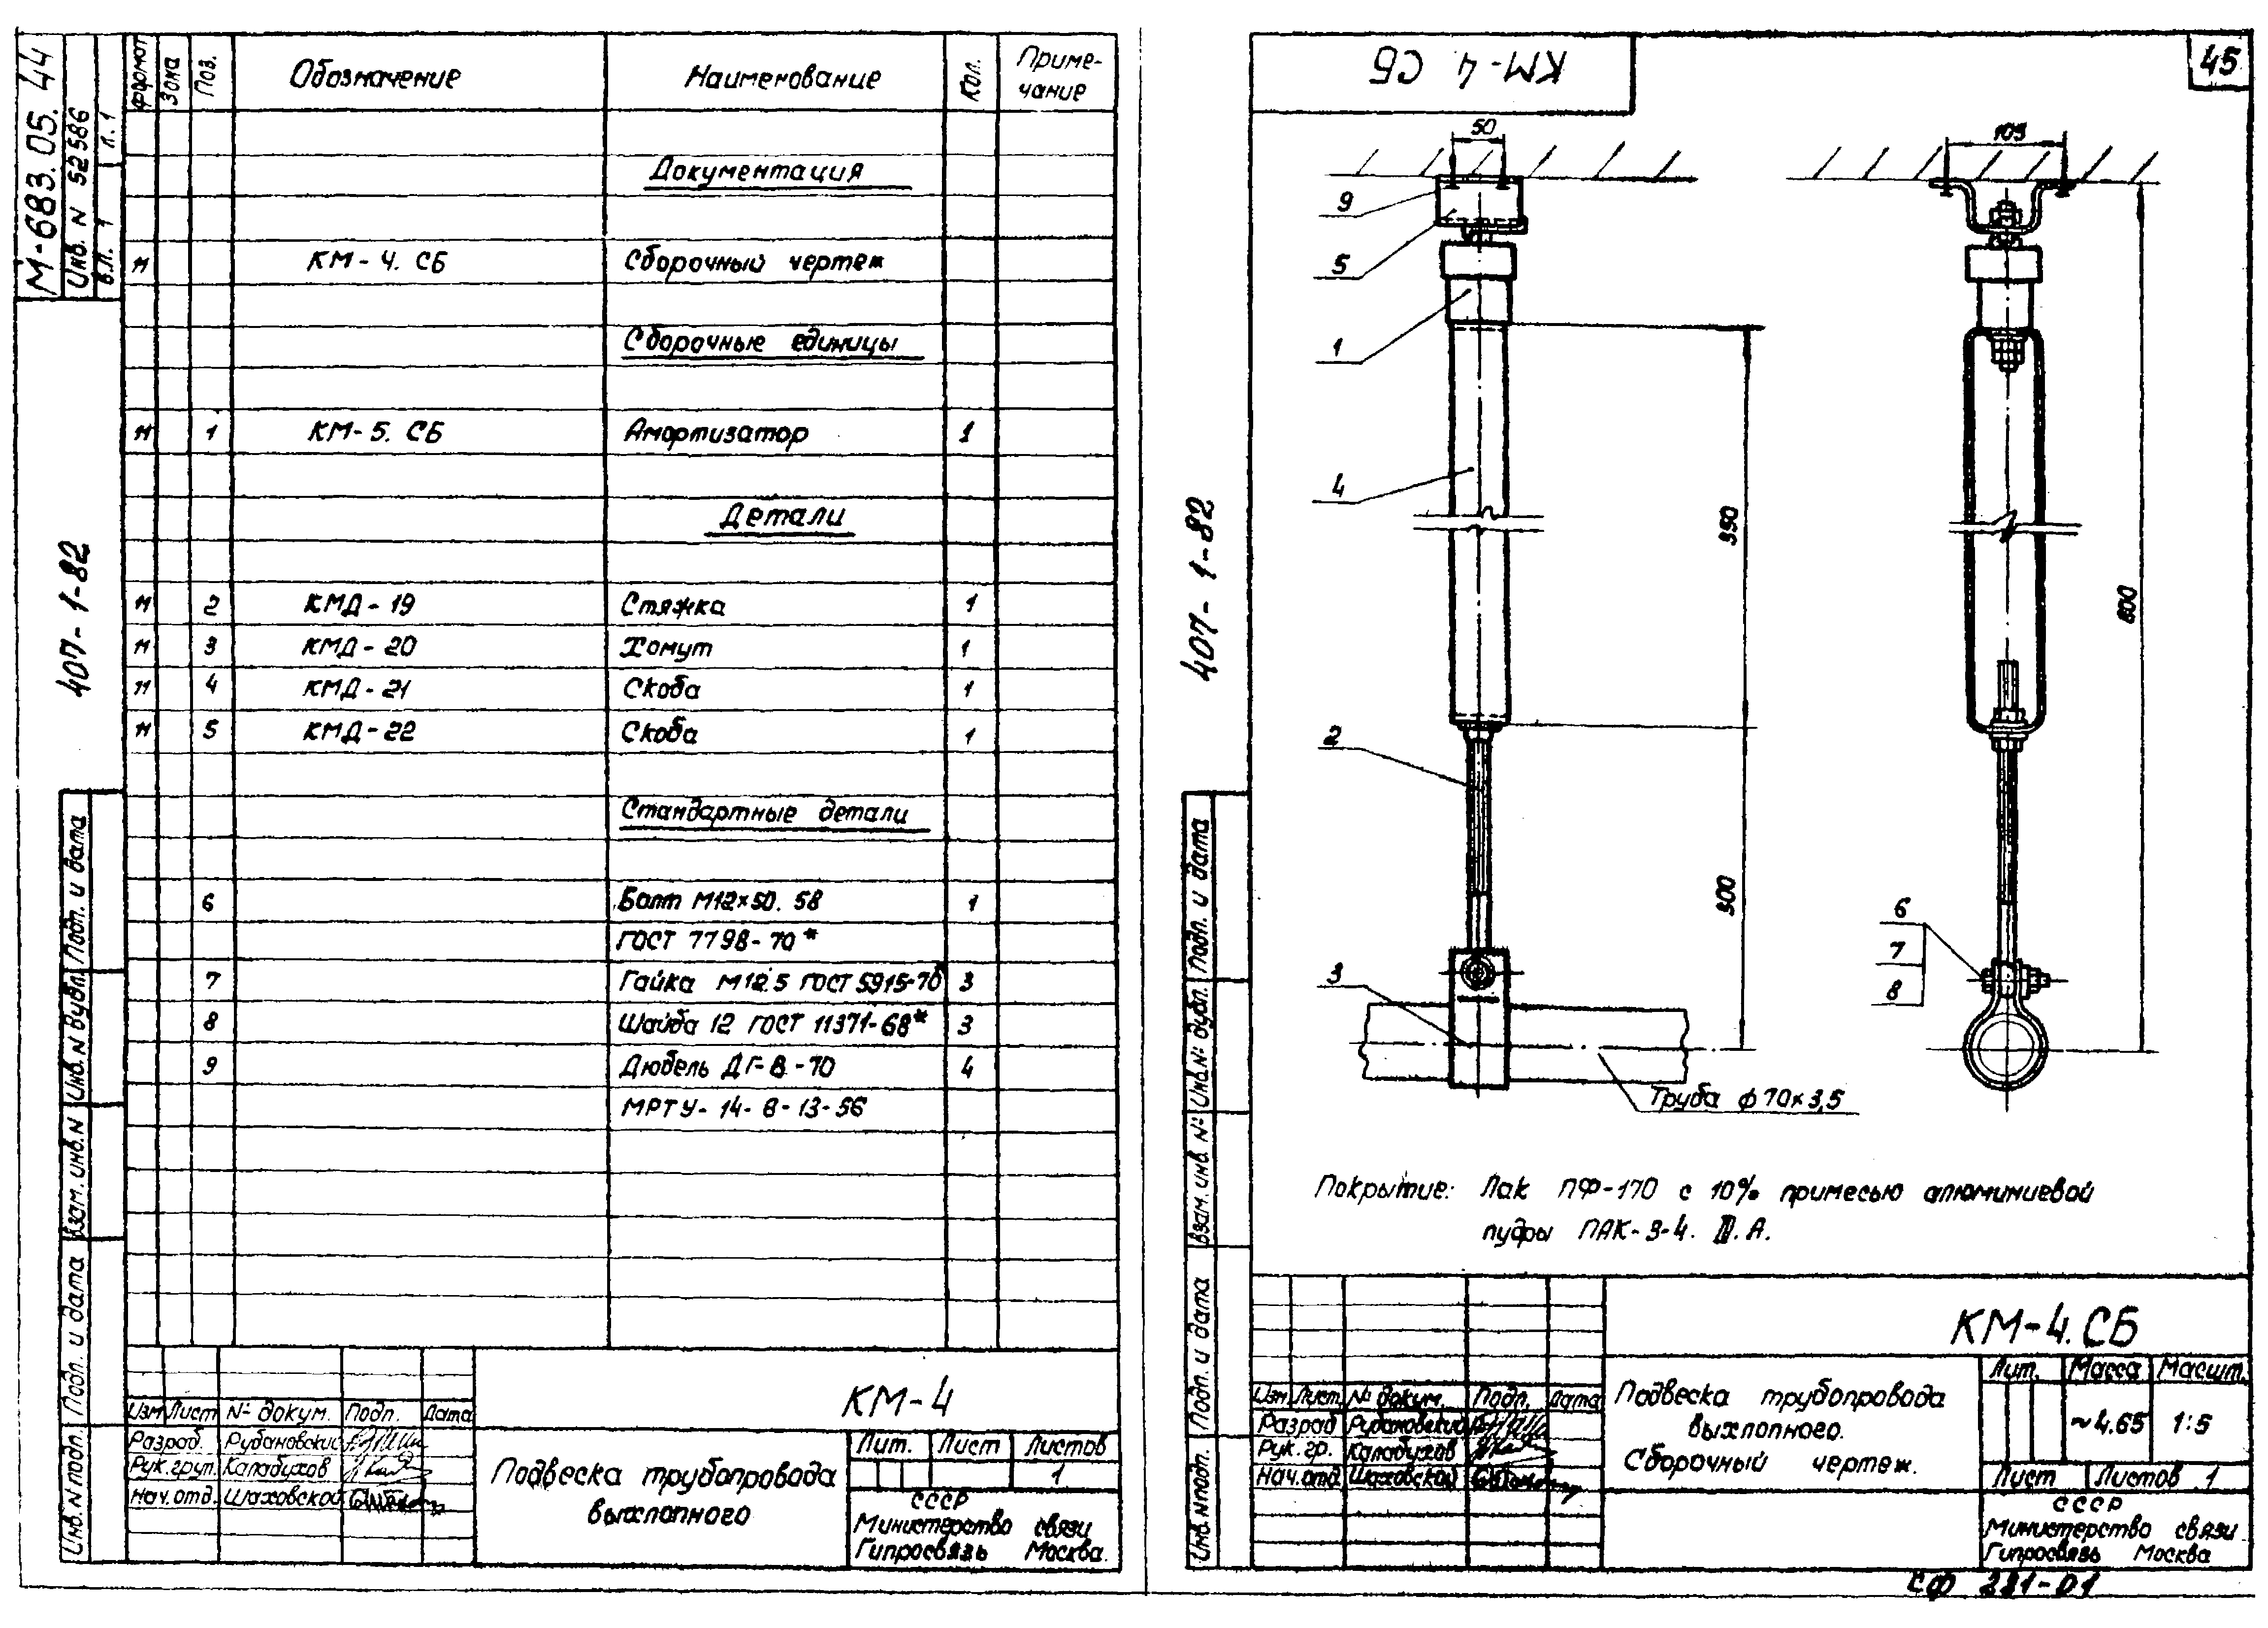 М-683.05. 44
Инв. N 52586
в.л. 1 л. 1
407-1-82
Подп. и дата
Инв. N дубл.
Взам. инв. N
Подп. и дата
Инв. N подл.
Формат Зона Поз. Обозначение Наименование Кол. Приме-
чание
Документация
11 КМ-4. СБ Сборочный чертеж
Сборочные единицы
11 1 КМ-5. СБ Амортизатор 1
Детали
11 2 КМД-19 Стяжка 1
11 3 КМД-20 Хомут 1
11 4 КМД-21 Скоба 1
11 5 КМД-22 Скоба 1
Стандартные детали
6 Болт М12×50. 58 1
ГОСТ 7798-70*
7 Гайка М12.5 ГОСТ 5915-70* 3
8 Шайба 12 ГОСТ 11371-68* 3
9 Дюбель ДГ-8-70 4
МРТУ-14-8-13-56
Изм Лист № докум. Подп. Дата
Разраб. Рубановский
Рук.груп. Калабухов
Нач.отд. Шаховской
КМ-4
Подвеска трубопровода
выхлопного
Лит. Лист Листов
1
СССР
Министерство связи
Гипросвязь Москва.
КМ-4 СБ
45
407-1-82
50
105
9
5
1
4
2
3
350
300
800
6
7
8
Труба ф70×3,5
Покрытие: Лак ПФ-170 с 10% примесью алюминиевой
пудры ПАК-3-4. III.А.
Подп. и дата
Инв.№ дубл.
Взам. инв. №
Подп. и дата
Инв.N подл.
Изм Лист № докум. Подп. Дата
Разраб Рубановский
Рук.гр. Калабухов
Нач.отд. Шаховской
КМ-4. СБ
Подвеска трубопровода
выхлопного.
Сборочный чертеж.
Лит. Масса Масшт.
~4.65 1:5
Лист Листов 1
СССР
Министерство связи
Гипросвязь Москва
СФ 221-01